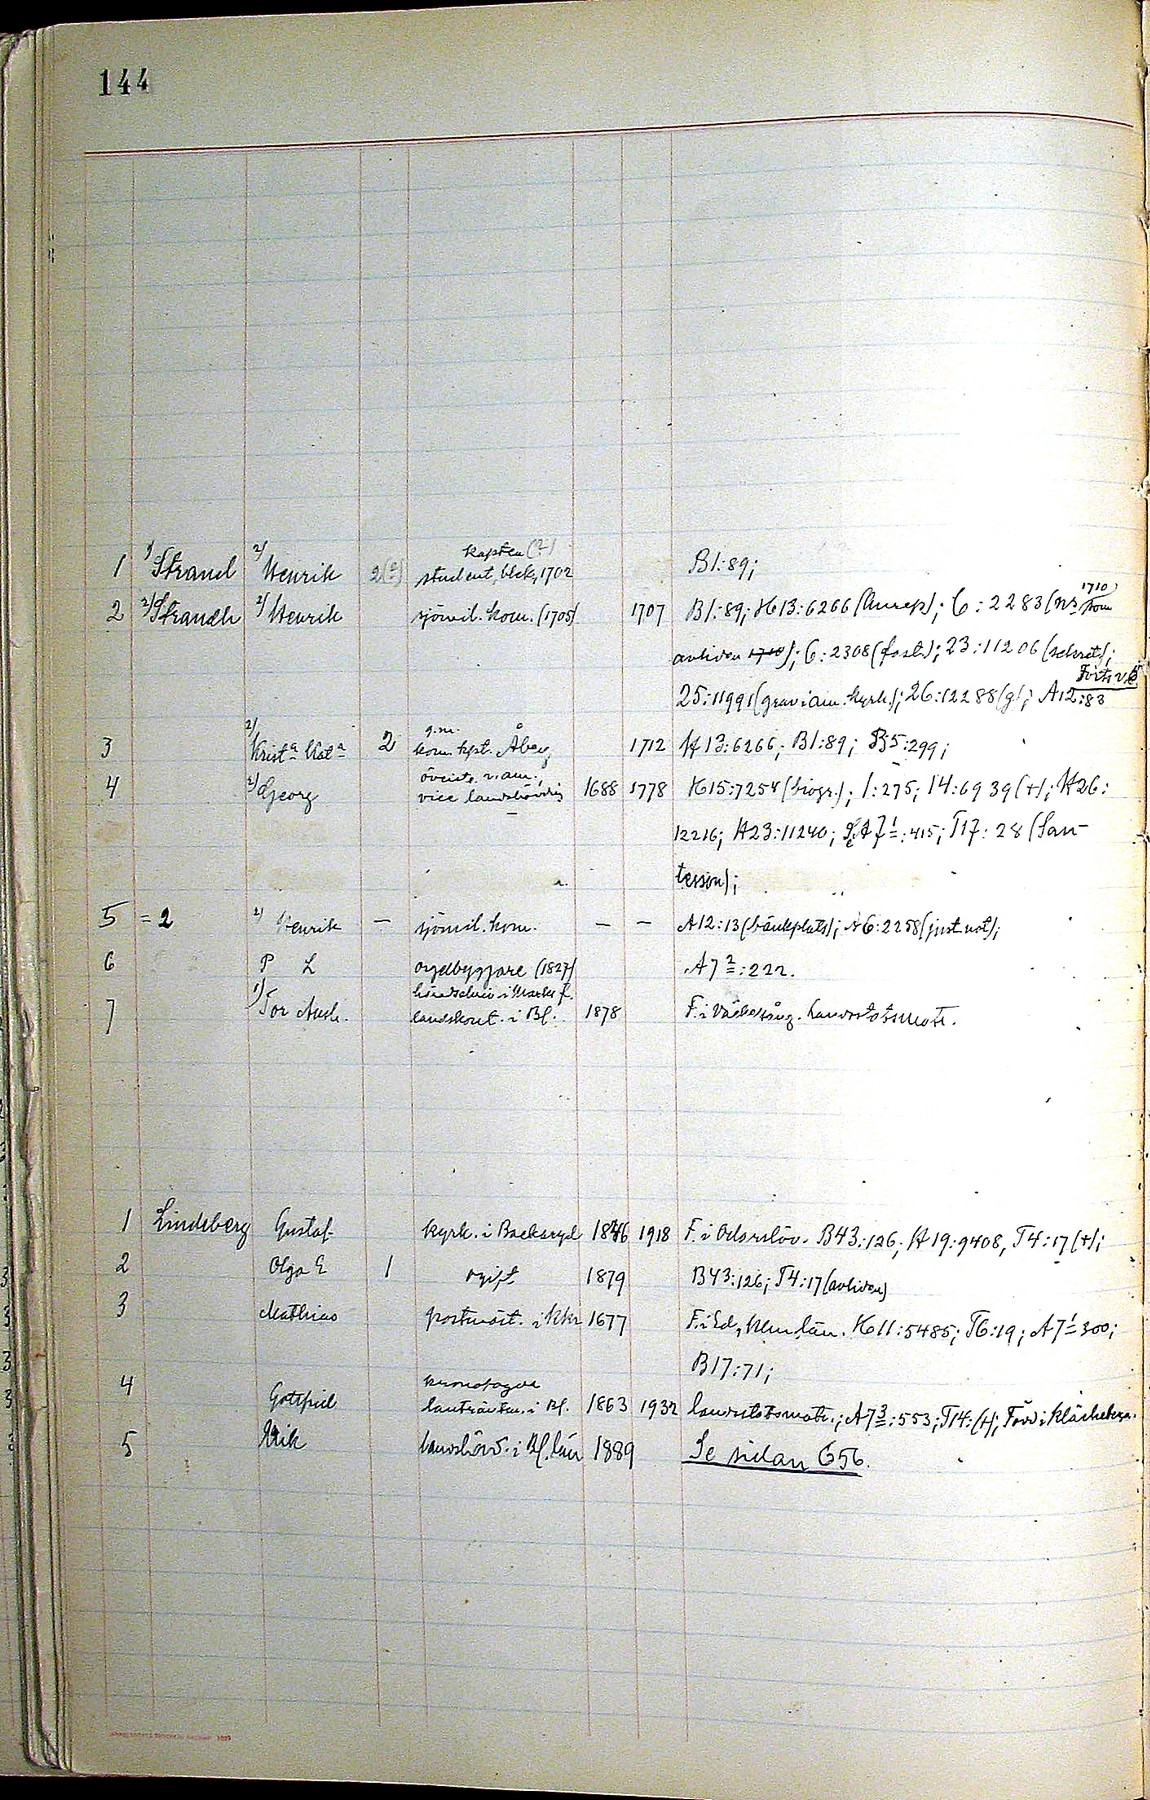 144
kapten (?)
1 1) Strand 2) Henrik 2(?) student, blek, 1702 B1:89;
1710
2 2) Strandh 2) Henrik sjömil. kom. (1705) 1707 B1:89; H13:6266 (Anrep); 6:2283 (ns som
avliden 1710); 6:2308 (fast.); 23:11206 (sekret);
Forts v. 5
25:11991 (grav i am. kyrk.); 26:12288 (g); A12:83
g.m.
3 2) Krista Kata 2 kom. kpt. Åberg 1712 H13:6266; B1:89; B5:299;
överste v. am.,
4 2) Georg vice landshövding 1688 1778 K15:7254 (biogr.); 1:275; 14:6939 (+); H26:
12216; H23:11240; A7 1:415; T17:28 (San-
tesson);
5 = 2 2) Henrik — sjömil. kom. — — A12:13 (bänkplats); A6:2258 (just. not);
6 P L orgelbyggare (1827) A7 2:222.
häradsskriv. i Marks f.
7 1) Tor Aush. landskont. i Bl. 1878 F. i Landsstatsmatr.
1 Lindeberg Gustaf kyrk. i Backaryd 1846 1918 F. i B43:126; H19:9408, T4:17 (+);
2 Olga E 1 ogift 1879 B43:126; T4:17 (avliden)
3 Mathias postmäst. i Kkr 1677 F. i Ed, Klm län. K11:5485; T6:19; A7 1:300;
B17:71;
kronofogde
4 Gottfrid lanträntm. i Bl. 1863 1932 landsstatsmatr.; A7 3:553; T14: (+); Född i
5 Erik landshövd. i Bl. län 1889 Se sidan 656.